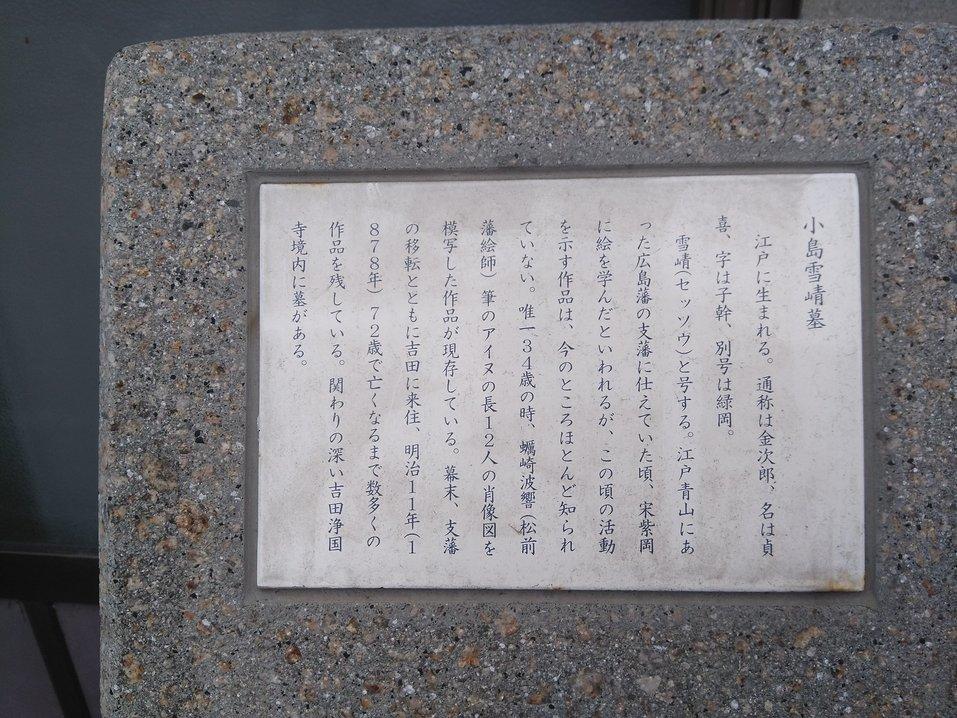 小島雪崝墓
江戸に生まれる。通称は金次郎、名は貞
喜、字は子幹、別号は緑岡。
雪崝(セッソウ)と号する。江戸青山にあ
った広島藩の支藩に仕えていた頃、宋紫岡
に絵を学んだといわれるが、この頃の活動
を示す作品は、今のところほとんど知られ
ていない。唯一34歳の時、蠣崎波響(松前
藩絵師)筆のアイヌの長12人の肖像図を
模写した作品が現存している。幕末、支藩
の移転とともに吉田に来住、明治11年(1
878年)72歳で亡くなるまで数多くの
作品を残している。関わりの深い吉田浄国
寺境内に墓がある。